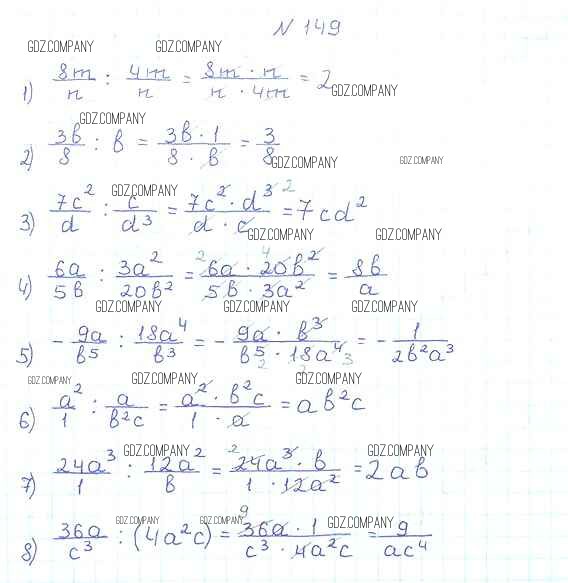 N 149
GDZ.COMPANY GDZ.COMPANY
1) 8m/n : 4m/n = 8m · n / n · 4m = 2
GDZ.COMPANY
GDZ.COMPANY
2) 3b/8 : b = 3b · 1 / 8 · b = 3/8
GDZ.COMPANY GDZ.COMPANY
GDZ.COMPANY
3) 7c²/d : c/d³ = 7c² · d³ 2 / d · c = 7cd²
GDZ.COMPANY GDZ.COMPANY
4) 6a/5b : 3a²/20b² = 2 6a · 4 20b² / 5b · 3a² = 8b/a
GDZ.COMPANY GDZ.COMPANY GDZ.COMPANY
5) - 9a/b⁵ : 18a⁴/b³ = - 9a · b³ / b⁵ 2 · 18a⁴ 3 = - 1/2b²a³
GDZ.COMPANY GDZ.COMPANY GDZ.COMPANY
6) a²/1 : a/b²c = a² · b²c / 1 · a = ab²c
GDZ.COMPANY GDZ.COMPANY
7) 24a³/1 : 12a²/b = 2 24a³ · b / 1 · 12a² = 2ab
GDZ.COMPANY GDZ.COMPANY GDZ.COMPANY
8) 36a/c³ : (4a²c) = 9 36a · 1 / c³ · 4a²c = 9/ac⁴